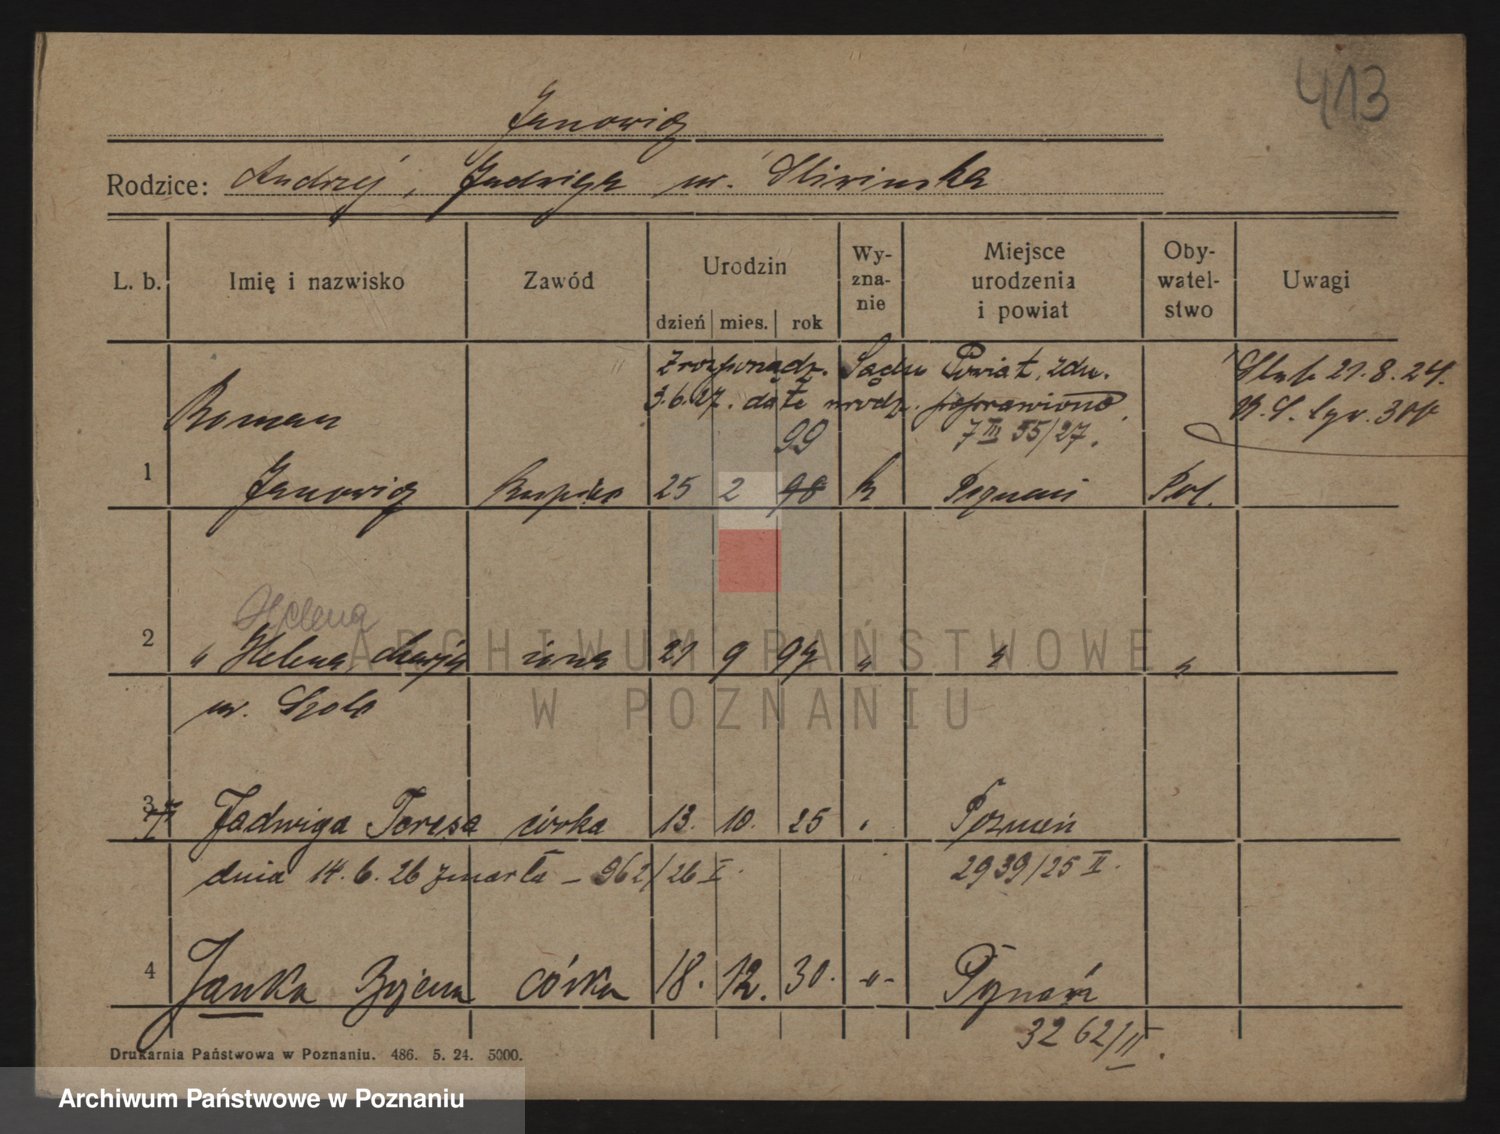 413
Janowicz
Rodzice: Andrzej, Jadwiga ur. Śliwinska
L. b. Imię i nazwisko Zawód Urodzin dzień mies. rok Wy-zna-nie Miejsce urodzenia i powiat Oby-watel-stwo Uwagi
Z rozporządz. Sądu Powiat. zdn. Ślub 21.8.24.
3.6.27. datę urodz. poprawiono
Roman 99 7 III 55/27.
1 Janowicz 25 2 98 k Poznań Pol.
Helena
2 " Helena Marja żona 21 9 97 " " "
ur. Szolc
3 Jadwiga Teresa córka 13. 10. 25 Poznań
dnia 14.6.26 zmarła – 962/26 I. 2939/25 II.
4 Janka córka 18. 12. 30. -"- Poznań
3262/II.
Drukarnia Państwowa w Poznaniu. 486. 5. 24. 5000.
ARCHIWUM PAŃSTWOWE
W POZNANIU
Archiwum Państwowe w Poznaniu